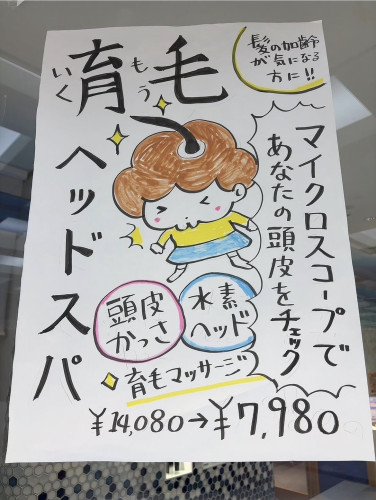 髪の加齢
が気になる
方に!!
育毛
いくもう
ヘッドスパ
マイクロスコープで
あなたの頭皮をチェック
頭皮
かっさ
水素
ヘッド
育毛マッサージ
¥14,080→¥7,980